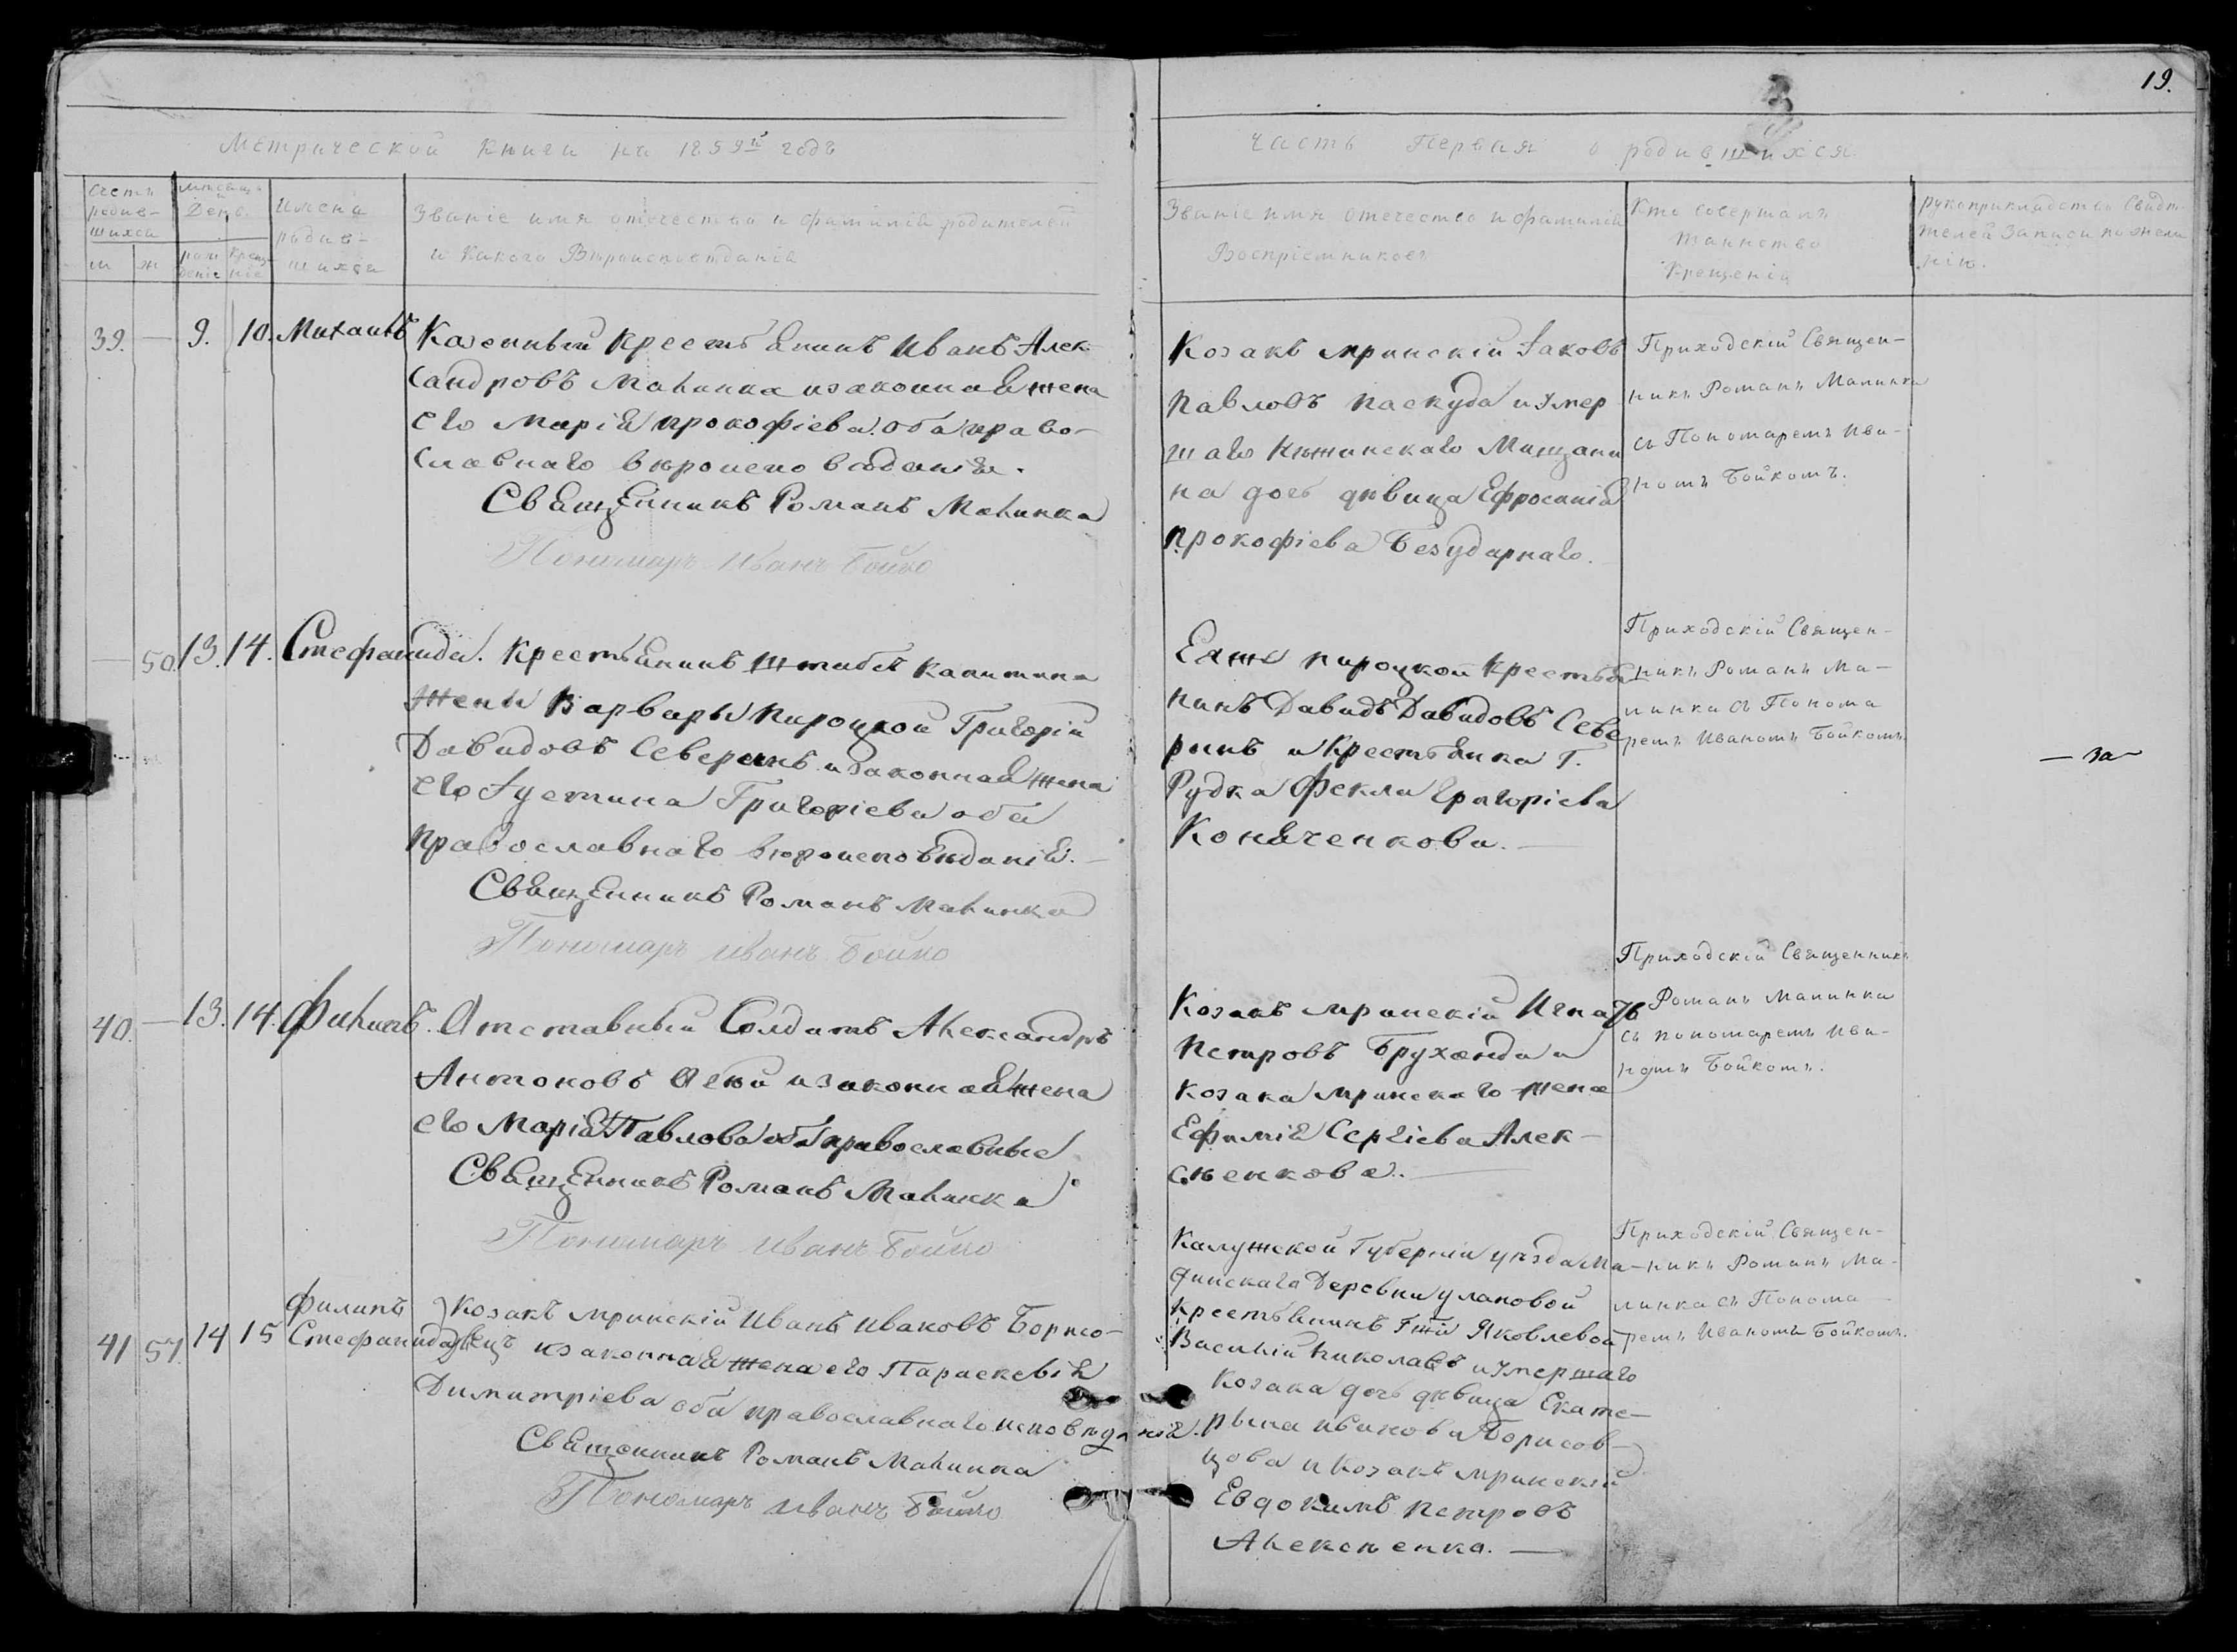 19.
Метрической книги на 1859й годъ
часть Первая о родившихся
Счетъ родив-
шихся
м ж
мѣсяцъ и День.
рож-
деніе
крещ-
ніе
Имена
родив-
шихся
Званіе имя отечество и фамилія родителей
и какого Вѣроисповѣданія
Званіе имя отечество и фамилія
Воспріемниковъ
Кто совершалъ
таинство
Крещенія
рукоприкладство Свидѣ-
телей записи по жела
нію.
39. — 9. 10. Михаилъ
Казенный крестьянинъ Иванъ Алек-
сандровъ Малинка и законная жена
его Марія Прокофіева оба право-
славнаго вѣроисповѣданія.
Священникъ Романъ Малинка
Пономарь Иванъ Бойко
Козакъ мринскій Іаковъ
Павловъ Паскуда и умер
шаго Нѣжинскаго Мищани
на дочь дѣвица Ефросинія
Прокофіева Безударнаго.
Приходскій Священ-
никъ Романъ Малинка
съ Пономаремъ Ива-
номъ Бойкомъ.
— 50. 13. 14. Стефанида.
Крестьянинъ Штабсъ Капитана
жены Варвары Пироцкой Григорій
Давидовъ Северинъ и законная жена
его Іустина Григоріева оба
православнаго вѣроисповѣданія. —
Священникъ Романъ Малинка
Пономарь Иванъ Бойко
Еяже Пироцкой Крестья-
нинъ Давидъ Давидовъ Севе
ринъ и Крестьянка Г.
Рудка Фекла Григоріева
Коняченкова. —
Приходскій Священ-
никъ Романъ Ма-
линка съ Понома
ремъ Иваномъ Бойкомъ.
— за —
40. — 13. 14. Филипъ.
Отставный Солдатъ Александръ
Антоновъ и законная жена
его Марія Павлова оба православные
Священникъ Романъ Малинка
Пономарь Иванъ Бойко
Козакъ мринскій Игнатъ
Петровъ Бруханда и
козака мринскаго жена
Ефимія Сергіева Алек-
сѣенкова. —
Приходскій Священникъ
Романъ Малинка
съ пономаремъ Ива-
номъ Бойкомъ.
41 51. 14 15 Филипъ
Стефанида
Козакъ мринскій Иванъ Ивановъ Борисо-
вецъ и законная жена его Параскевія
Димитріева оба православнаго исповѣданія.
Священникъ Романъ Малинка
Пономарь Иванъ Бойко
Калужской Губерніи уѣзда Ма-
динскаго Деревни улановой
крестьянинъ Гжи Яковлевой
Василій Николаевъ и умершаго
Козака дочь дѣвица Екате-
рина Иванова Борисов-
цова и Козакъ мринскій
Евдокимъ Петровъ
Алексѣенка. —
Приходскій Священ-
никъ Романъ Ма-
линка съ Понома
ремъ Иваномъ Бойкомъ.